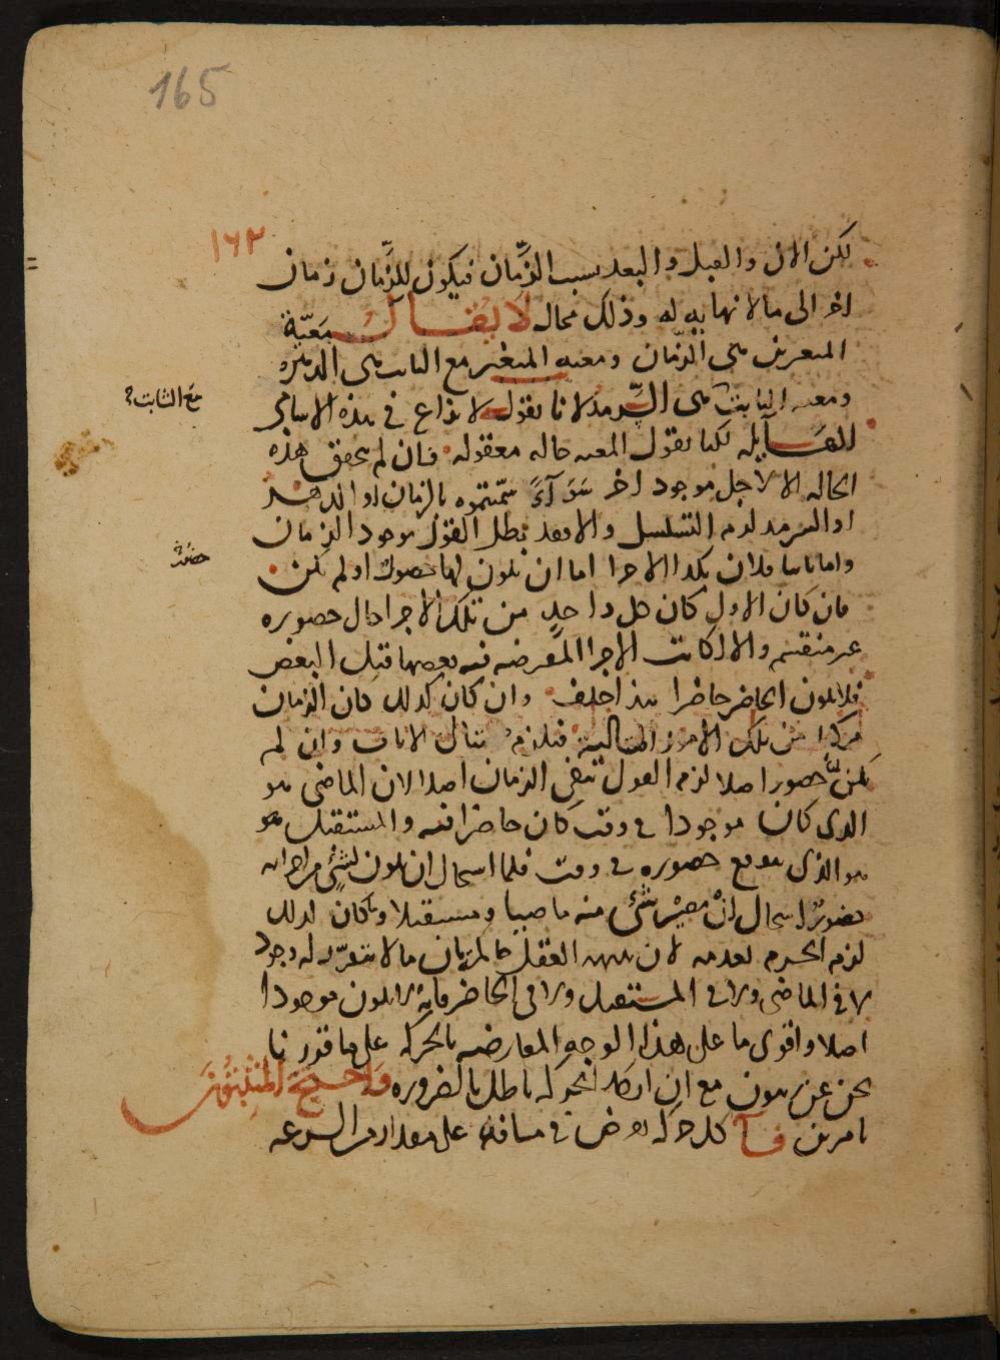 165
١٦٢
لكن الان والقبل والبعد بسبب الزَّمان فيكون للزَّمان زمان
اخر الى ما لا نهايه له وذلك محال لا يقال معيّة
المتغيرين هي الزّمان ومعيه المتغير مع الثابت هي الدهر
ومعيه الثابت هي السّرمد لانا نقول لا نزاع في هذه الاسامي
مع الثابت
الهايله لكنا نقول المعيه حاله معقوله فان لم تتحقق هذه
الحاله الا لاجل موجود اخر سَوَآءً سمّيتموه بالزمان او الدهر
او السرمد لزم التسلسل والا فقد بطل القول بوجود الزمان
واما ثانيا فلان تلك الاجزا اما ان يكون لها حصول او لم يكن
حضور
فان كان الاول كان كل واحدٍ من تلك الاجزا حال حضوره
غير منقسم والا لكانت الاجزا المفترضه فيه بعضها قبل البعض
فلا يكون الحاضر حاضرا هذا خلف وان كان كذلك كان الزمان
مركبا من تلك الامور المتتالية فيلزم تتالى الانات وان لم
يكن لها حضور اصلا لزم القول بنفي الزمان اصلا لان الماضى هو
الذى كان موجودا في وقت كان حاضرا فيه والمستقبل هو
هو الذى يتوقع حضوره في وقت فلما استحال ان يكون لشئٍ من اجزائه
حضورٌ استحال انْ يصير شئ منه ماضيا ومستقبلا وما كان كذلك
لزم الجزم بعدمه لان بديهه العقل حاكمة بان ما لا تقرّر له وجود
لا في الماضى ولا في المستقبل ولا في الحاضر فانه لا يكون موجودا
اصلا واقوى ما على هذا الوجه المعارضه بالحركه على ما قررنا
نحن عن زينون مع ان انكار الحركه باطل بالضروره وَاحتج المثبتون
بامرين فآ كل حركه تفرض في مسافه على مقدار من السرعه